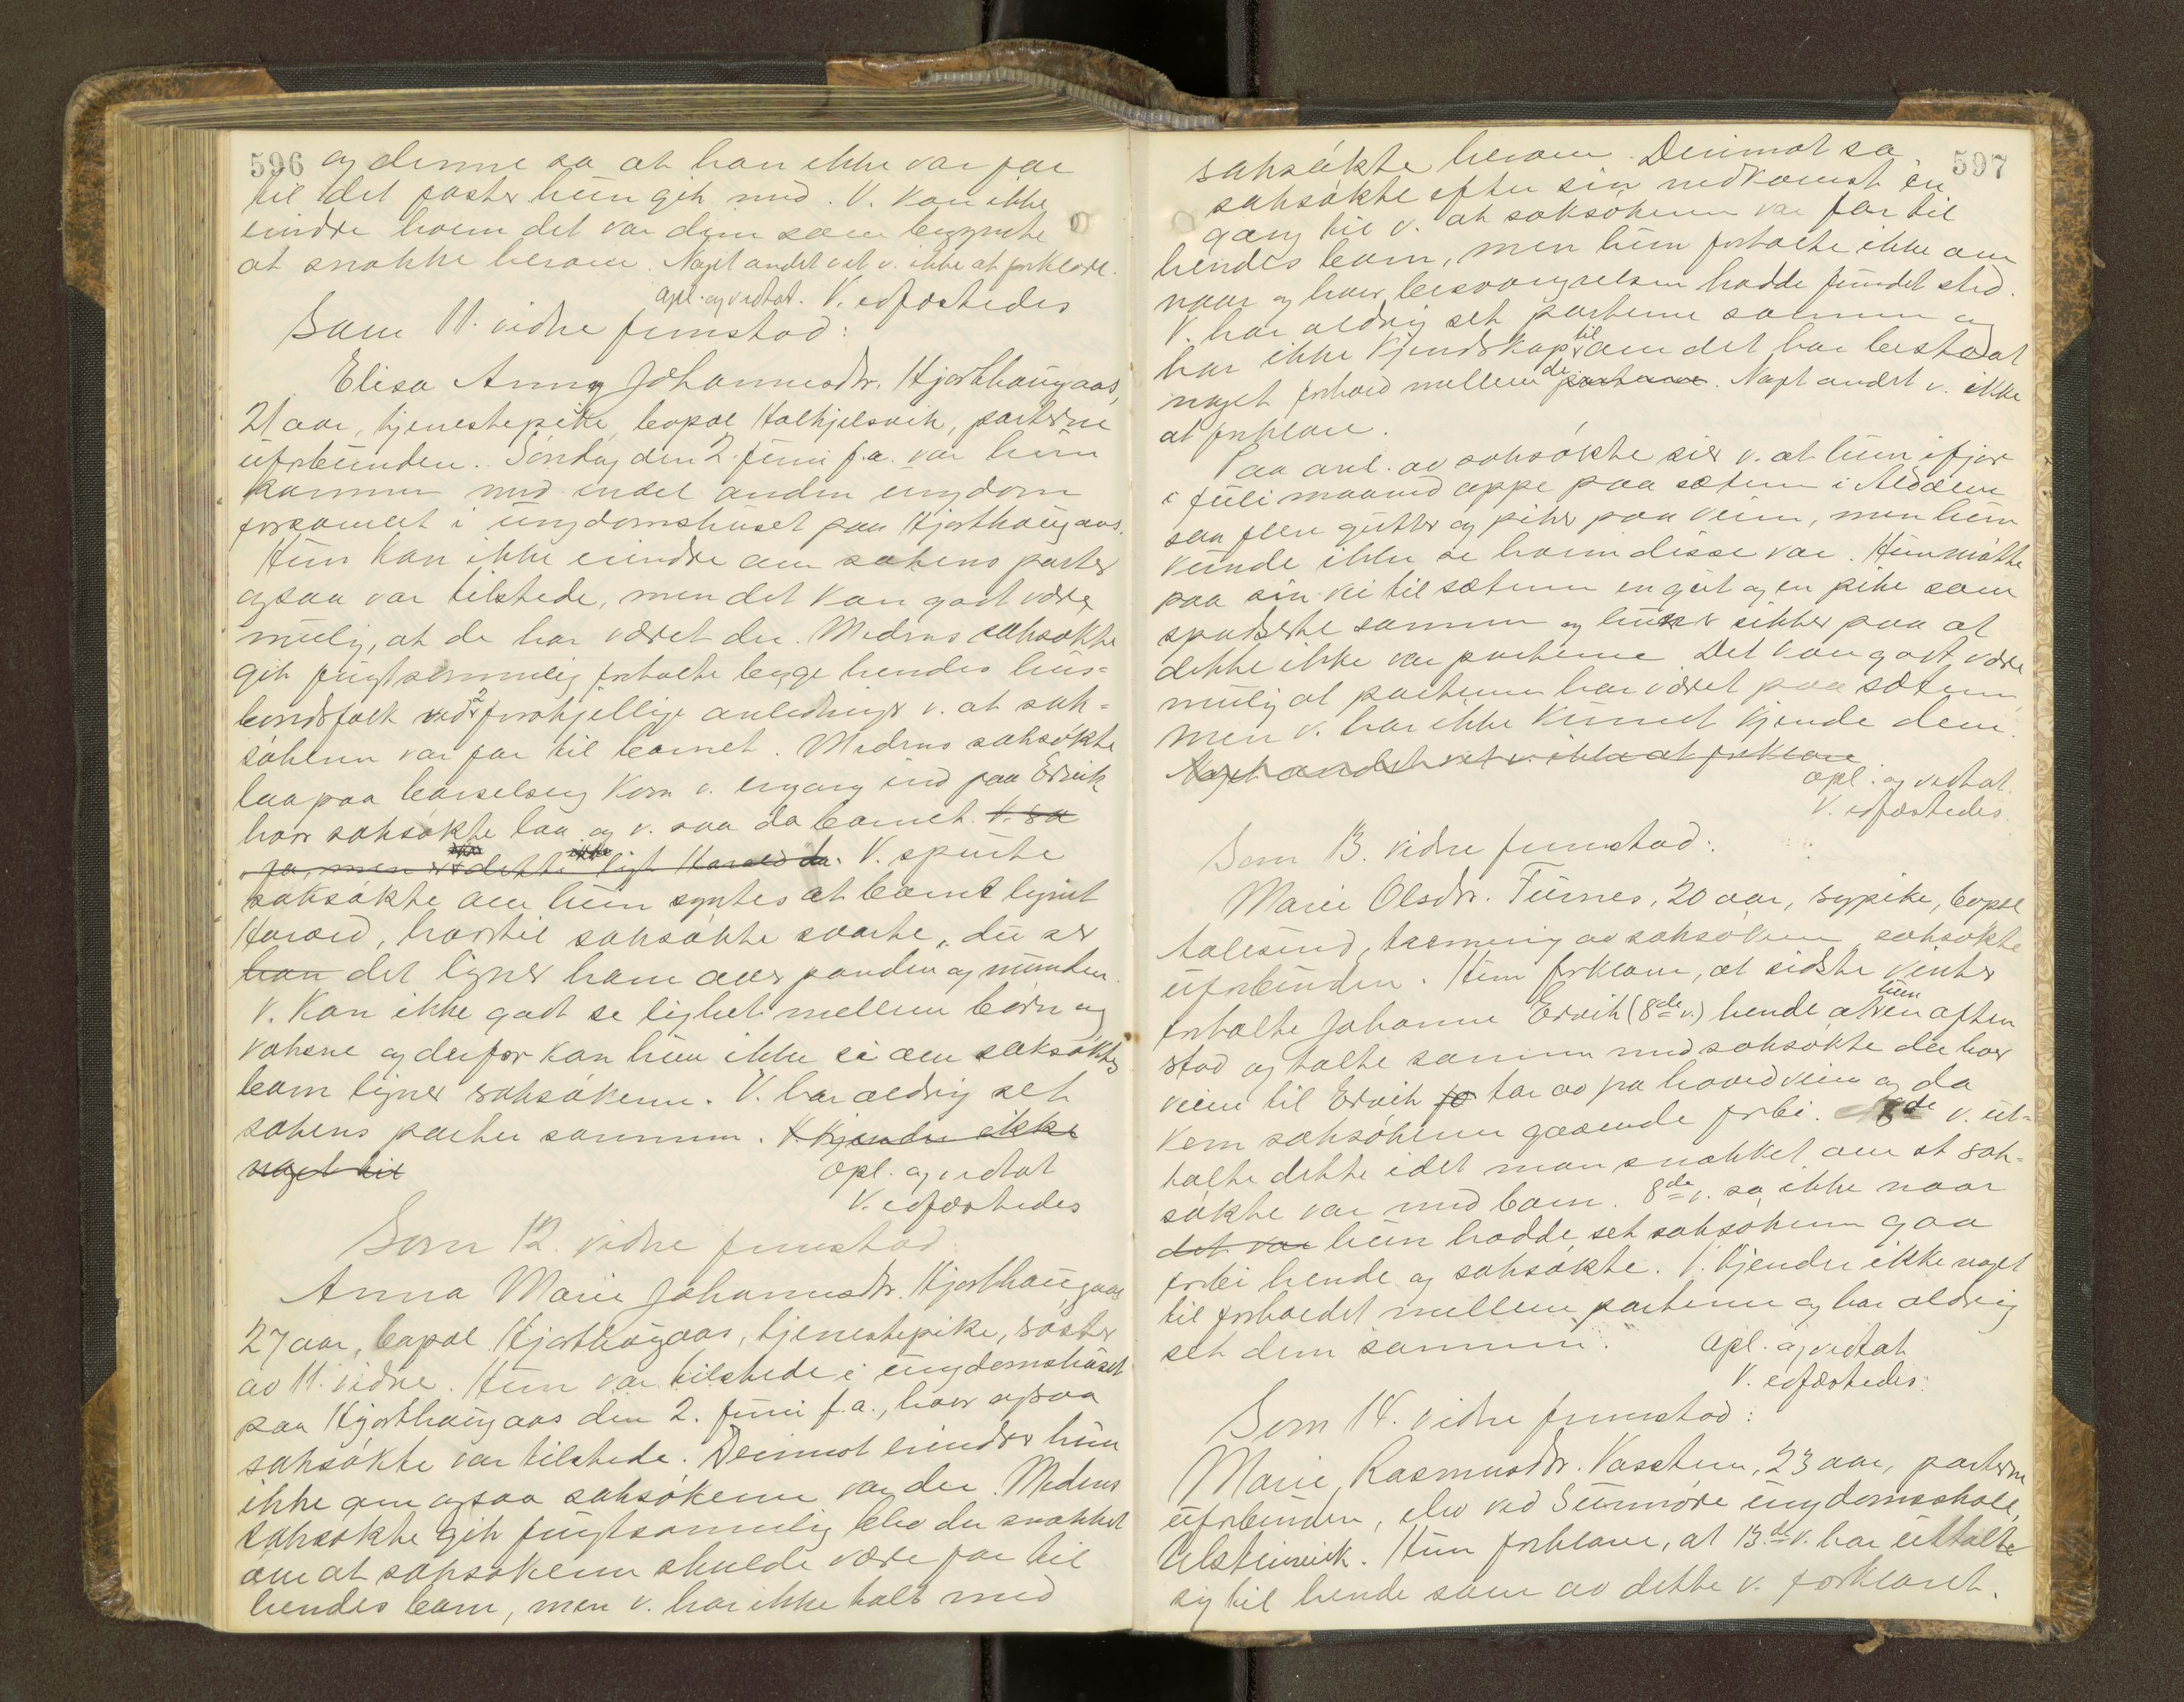 596 og denne sa at han ikke var far
til det foster hun gik med. V. kan ikke
erindre hvem det var dem som begynte
at snakke herom. Noget andet vet v. ikke at forklare.
Opl. og vedtat. V. edfæstedes
Som 11. vidne fremstod:
Elisa Anna Johannesdtr. Hjorthaugaas,
21 aar, tjenestepike, bopæl Halkjelsvik, parterne
uforbunden. Søndag den 2. juni f.a. var hun
sammen med endel anden ungdom
forsamlet i ungdomshuset paa Hjorthaugaas.
Hun kan ikke erindre om sakens parter
ogsaa var tilstede, men det kan godt være
mulig, at de har været der. Medens saksøkte
gik frugtsommelig fortalte begge hendes hus-
bondsfolk ved 2 forskjellige anledninger v. at sak-
søkeren var far til barnet. Medens saksøkte
laa paa barselseng kom v. engang ind paa Ervik
hvor saksøkte laa og v. saa da barnet. V. sa
ja, men er dette ikke ligt Harald da. V. spurte
saksøkte om hun syntes at barnet lignet
Harald, hvortil saksøkte svarte "du ser
han det ligner ham over panden og munden.
V. kan ikke godt se lighet mellem børn og
voksne og derfor kan hun ikke si om saksøktes
barn ligner saksøkeren. V. har aldrig set
sakens parter sammen. V kjender ikke
noget til Opl. og vedtat
V. edfæstedes
Som 12. vidne fremstod
Anna Marie Johannesdtr. Hjorthaugaas
27 aar, bopæl Hjorthaugaas, tjenestepike, søster
av 11. vidne. Hun var tilstede i ungdomshuset
paa Hjorthaugaas den 2. juni f.a., hvor ogsaa
saksøkte var tilstede. Derimot erindrer hun
ikke om ogsaa saksøkeren var der. Medens
saksøkte gik frugtsommelig blev der snakket
om at saksøkeren skulde være far til
hendes barn, men v. har ikke talt med
597
saksøkte herom. Derimot sa
saksøkte efter sin nedkomst en
gang til v. at saksøkeren var far til
hendes barn, men hun fortalte ikke om
naar og hvor besvangrelsen hadde fundet sted.
V. har aldrig set parterne sammen og
har ikke kjendskap til om det har bestaaat
noget forhold mellem de parterne. Noget andet v. ikke
at forklare.
Paa anl. av saksøkte sier v. at hun ifjor
i juli maaned oppe paa sætren i Aldalen
saa flere gutter og piker paa veien, men hun
kunde ikke se hvem disse var. Hun møtte
paa sin vei til sætren en gut og en pike som
spaserte sammen og hun er sikker paa at
dette ikke var parterne. Det kan godt være
mulig at parterne har været paa sætren,
men v. har ikke kunnet kjende dem.
Noget andet vet v. ikke at forklare
Opl. og vedtat.
V. edfæstedes.
Som 13. vidne fremstod:
Marie Olsdtr. Furnes, 20 aar, sypike, bopæl
Aalesund, tremening av saksøkeren, saksøkte
uforbunden. Hun forklarer, at sidste vinter
fortalte Johanne Ervik (8de v.) hende at hun en aften
stod og talte sammen med saksøkte der hvor
veien til Ervik fo tar av fra hovedveien og da
kom saksøkeren gaaende forbi. 8de v. ut-
talte dette idet man snakket om at sak-
søkte var med barn. 8de v. sa ikke naar
det var hun hadde set saksøkeren gaa
forbi hende og saksøkte. V. kjender ikke noget
til forholdet mellem parterne og har aldrig
set dem sammen. Opl. og vedtat
V. edfæstedes.
Som 14. vidne fremstod:
Marie Rasmusdtr. Vasstun, 23 aar, parterne
uforbunden, elev ved Søndmøre ungdomsskole,
Ulsteinvik. Hun forklarer, at 13.de v. har uttalte
sig til hende som av dette v. forklaret.